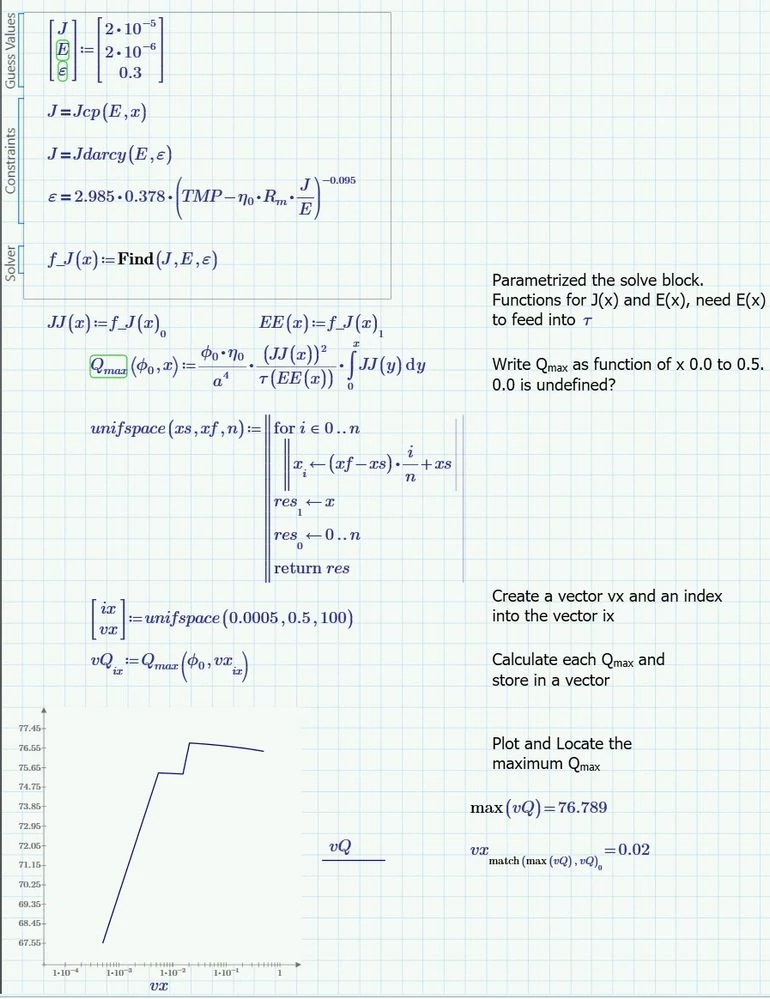 Guess Values
[J E ε] := [2·10⁻⁵ 2·10⁻⁶ 0.3]
Constraints
J=Jcp(E,x)
J=Jdarcy(E,ε)
ε=2.985·0.378·(TMP−η₀·Rₘ·J/E)^−0.095
Solver
f_J(x):=Find(J,E,ε)
Parametrized the solve block.
Functions for J(x) and E(x), need E(x)
to feed into τ
JJ(x):=f_J(x)₀ EE(x):=f_J(x)₁
Qmax(ϕ₀,x):=ϕ₀·η₀/a⁴·(JJ(x))²/τ(EE(x))·∫₀ˣ JJ(y)dy
Write Qmax as function of x 0.0 to 0.5.
0.0 is undefined?
unifspace(xs,xf,n):=‖for i∈0..n
‖x_i←(xf−xs)·i/n+xs
res₁←x
res₀←0..n
return res
[ix vx]:=unifspace(0.0005,0.5,100)
Create a vector vx and an index
into the vector ix
vQ_ix:=Qmax(ϕ₀,vx_ix)
Calculate each Qmax and
store in a vector
Plot and Locate the
maximum Qmax
77.45
76.55
75.65
74.75
73.85
72.95
72.05
71.15
70.25
69.35
68.45
67.55
1·10⁻⁴ 1·10⁻³ 1·10⁻² 1·10⁻¹ 1
vx
vQ
max(vQ)=76.789
vx_match(max(vQ),vQ)₀=0.02